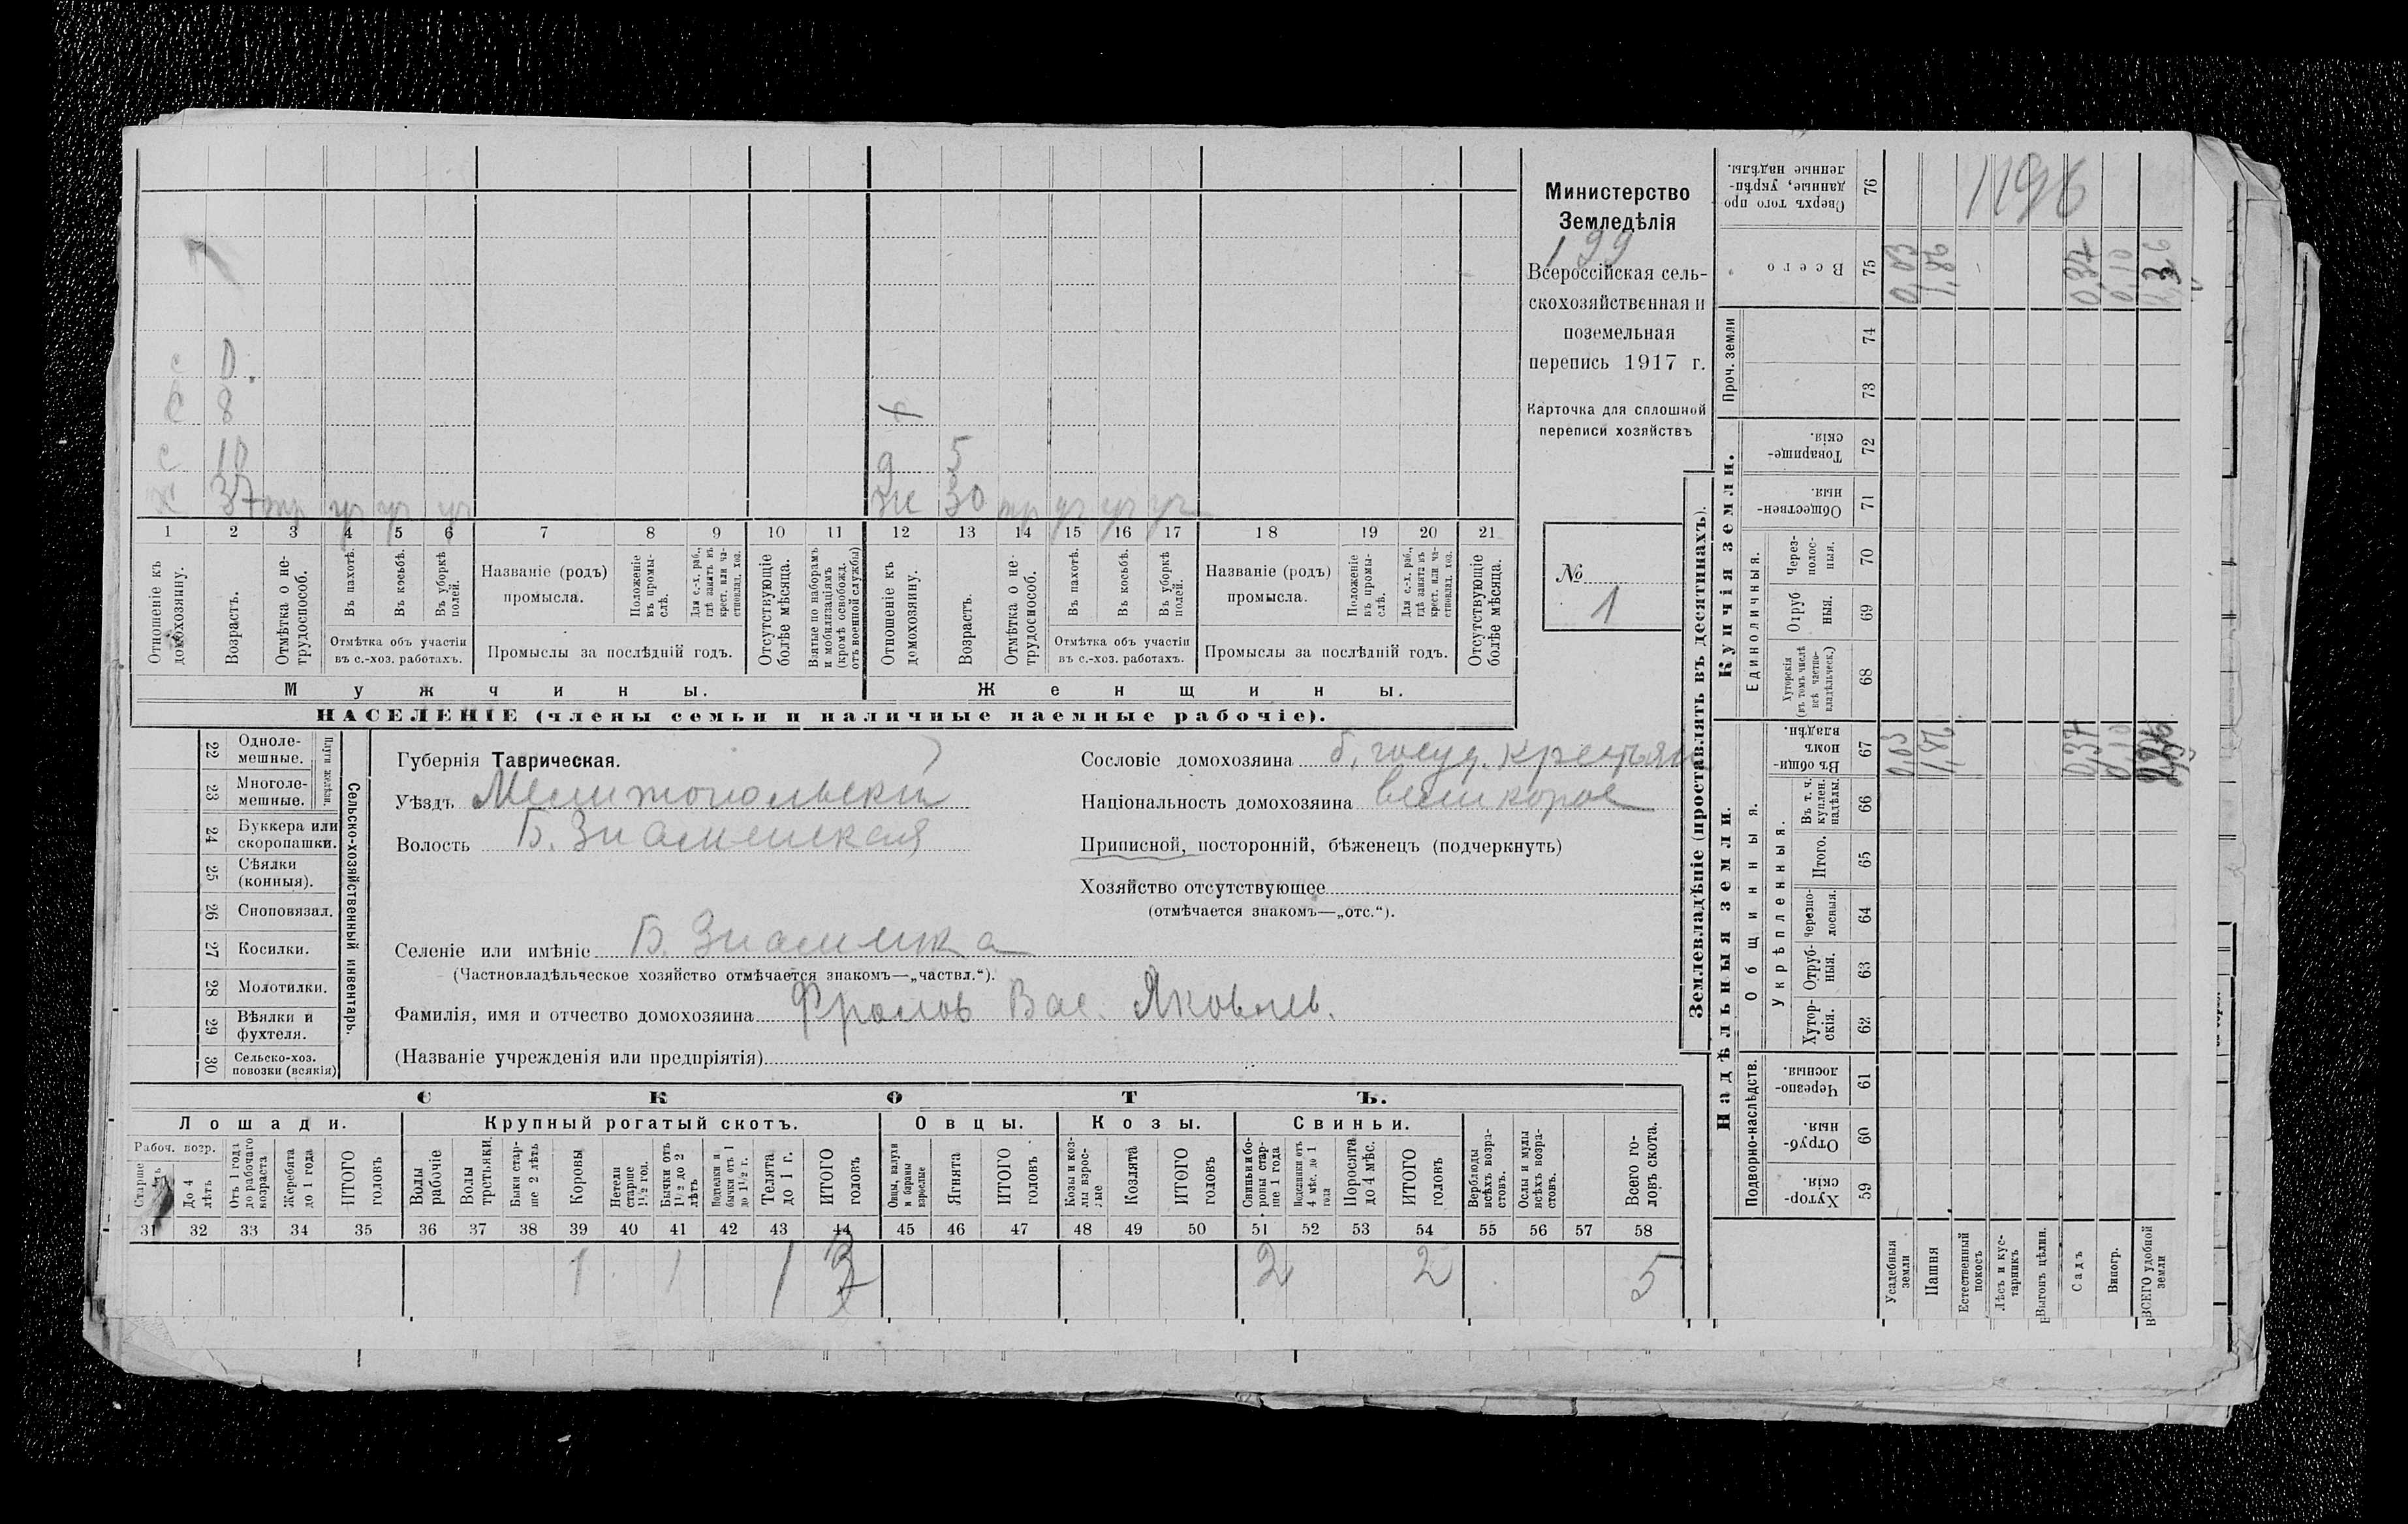 Министерство
Земледѣлія
199
Всероссійская сель-
скохозяйственная и
поземельная
перепись 1917 г.
Карточка для сплошной
переписи хозяйствъ
№
1
с
с 8
с 10
х 37 тр уч уч уч
д 5
ж 30 тр уч уч уч
1 2 3 4 5 6 7 8 9 10 11 12 13 14 15 16 17 18 19 20 21
Отношеніе къ домохозяину.
Возрастъ.
Отмѣтка о не-трудоспособ.
Въ пахотѣ.
Въ косьбѣ.
Въ уборкѣ полей.
Отмѣтка объ участіи
въ с.-хоз. работахъ.
Названіе (родъ)
промысла.
Положеніе въ промы-слѣ.
Для с.-х. раб., гдѣ занятъ въ крест. или ча-стновлад. хоз.
Промыслы за послѣдній годъ.
Отсутствующіе болѣе мѣсяца.
Взятые по наборамъ и мобилизаціямъ (кромѣ освобожд. отъ военной службы)
Отношеніе къ домохозяину.
Возрастъ.
Отмѣтка о не-трудоспособ.
Въ пахотѣ.
Въ косьбѣ.
Въ уборкѣ полей.
Отмѣтка объ участіи
въ с.-хоз. работахъ.
Названіе (родъ)
промысла.
Положеніе въ промы-слѣ.
Для с.-х. раб., гдѣ занята въ крест. или ча-стновлад. хоз.
Промыслы за послѣдній годъ.
Отсутствующіе болѣе мѣсяца.
Мужчины.
Женщины.
НАСЕЛЕНІЕ (члены семьи и наличные наемные рабочіе).
22 Одноле-
мешные.
23 Многоле-
мешные.
Плуги желѣзн.
24 Буккера или
скоропашки.
25 Сѣялки
(конныя).
26 Сноповязал.
27 Косилки.
28 Молотилки.
29 Вѣялки и
фухтеля.
30 Сельско-хоз.
повозки (всякія)
Сельско-хозяйственный инвентарь.
Губернія Таврическая.
Уѣздъ Мелитопольскій
Волость Б. Знаменская
Селеніе или имѣніе Б. Знаменка
(Частновладѣльческое хозяйство отмѣчается знакомъ—„частвл.“).
Фамилія, имя и отчество домохозяина Фролов Вас. Яковлев.
(Названіе учрежденія или предпріятія)
Сословіе домохозяина б. госуд. крестьян
Національность домохозяина великорос
Приписной, посторонній, бѣженецъ (подчеркнуть)
Хозяйство отсутствующее
(отмѣчается знакомъ—„отс.“).
СКОТЪ.
Лошади.
Крупный рогатый скотъ.
Овцы.
Козы.
Свиньи.
Рабоч. возр.
Старше
До 4 лѣтъ
Отъ 1 года до рабочаго возраста
Жеребята до 1 года
ИТОГО головъ
Волы рабочіе
Волы третьяки.
Быки стар-ше 2 лѣтъ
Коровы
Нетели старше 1½ год.
Бычки отъ 1½ до 2 лѣтъ
Подтелки и бычки отъ 1 до 1½ г.
Телята до 1 г.
ИТОГО головъ
Овцы, валухи и бараны взрослые
Ягнята
ИТОГО головъ
Козы и коз-лы взрос-лые
Козлята
ИТОГО головъ
Свиньи и бо-ровы стар-ше 1 года
Подсвинки отъ 4 мѣс. до 1 года
Поросята до 4 мѣс.
ИТОГО головъ
Верблюды всѣхъ возра-стовъ.
Ослы и мулы всѣхъ возра-стовъ.
Всего го-ловъ скота.
31 32 33 34 35 36 37 38 39 40 41 42 43 44 45 46 47 48 49 50 51 52 53 54 55 56 57 58
1 1 1 3 2 2 5
Землевладѣніе (проставлять въ десятинахъ).
Купчія земли.
Надѣльныя земли.
Проч. земли
Единоличныя.
Общинныя.
Укрѣпленныя.
Подворно-наслѣдств.
Сверхъ того про данные, укрѣп-ленные надѣлы. 76
1196
Всего 75 0,03 1,86 0,37 0,10 2,36
74
73
Товарище-скія. 72
Обществен-ныя. 71
Через-полос-ныя. 70
Отруб ныя. 69
Хуторскія (въ томъ числѣ всѣ частно-владѣльческ.) 68
Въ общи-номъ владѣн. 67 0,03 1,86 0,37 0,10
Въ т. ч. куплен. надѣлы 66
Итого. 65
Черезпо-лосныя. 64
Отруб-ныя. 63
Хутор-скія. 62
Черезпо-лосныя. 61
Отруб-ныя. 60
Хутор-скія. 59
Усадебныя земли
Пашня
Естественный покосъ
Лѣсъ и кус-тарникъ
Выгонъ цѣлин.
Садъ
Виногр.
ВСЕГО удобной земли